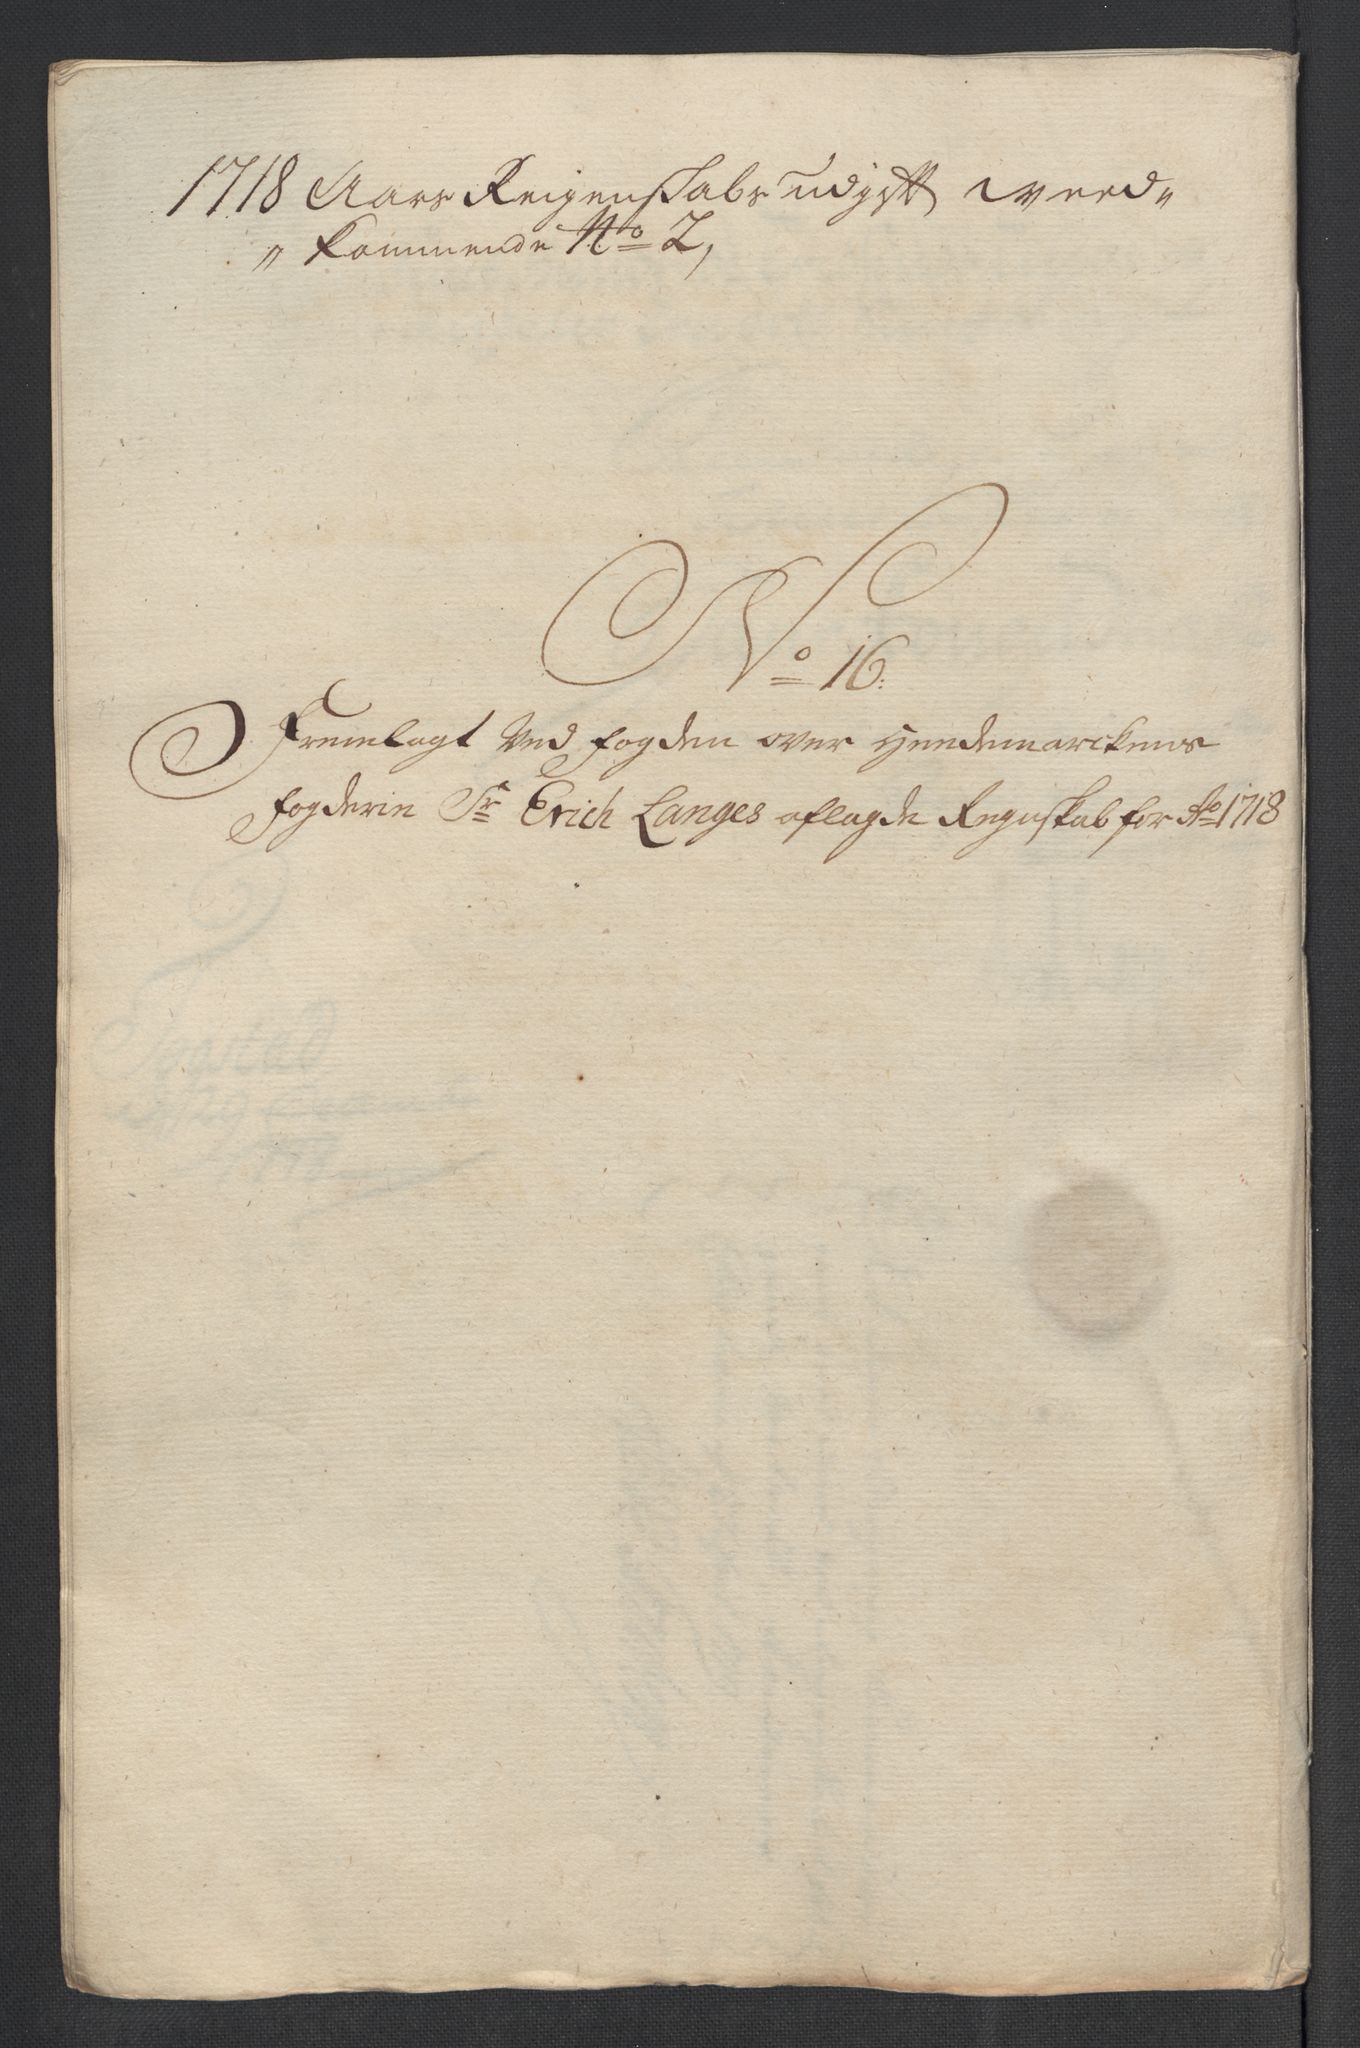 1718 Aars Reigenskabs udgft weed„
„ kommende No 2,
No 16.
Fremlagt Ved fogden over Heedemarckens
fogderie Sr Erich Langes aflagde Regnskab for Ao 1718